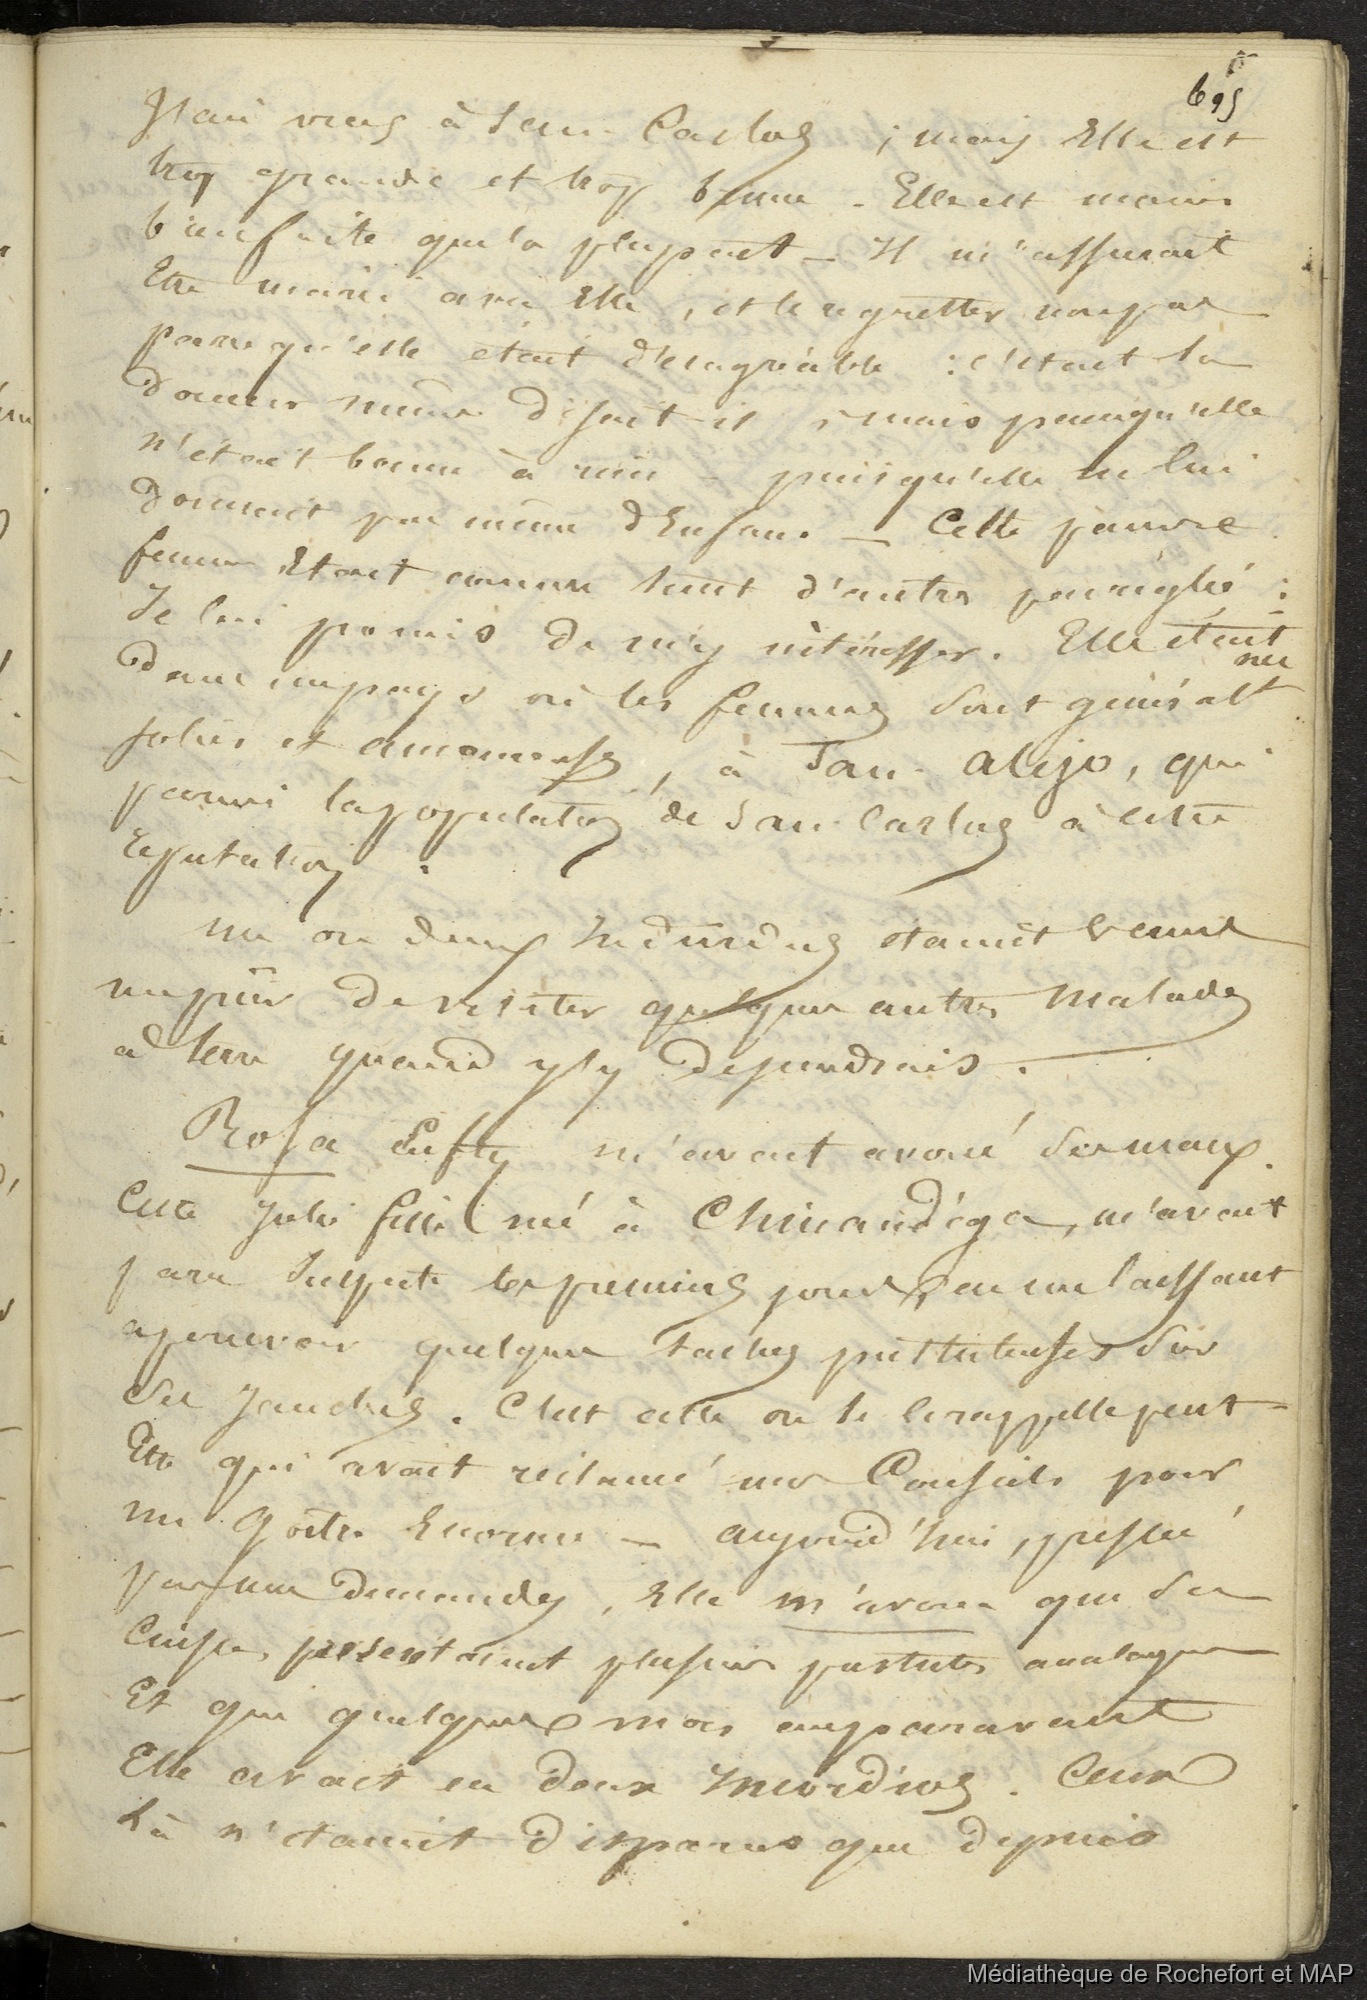 695
J'ai vues à San Carlos ; mais Elle est
trop grande et trop brune . Elle est moins
bien faite que la plupart _ Il m'assurait
Etre marié avec Elle , et le regretter non pas
parcequ'elle était désagréable : c'était la
douceur même disait-il ; mais parcequ'elle
n'était bonne à rien _ puisqu'elle ne lui
donnait pas même d'Enfans _ Cette pauvre
femme Etait comme tant d'autres :
Je lui promis de m'y intéresser . Elle était
née
dans un pays où les femmes sont généralt
jolies et amoureuses , à San Alejo , qui
parmi la population de San Carlos a cette
réputation .
un ou deux Individus étaient venus
me prier de visiter quelques autres Malades
à terre quand j'y descendrais .
Rosa m'avait avoué ses maux .
Cette jolie fille née à Chinandéga , m'avait
paru suspecte les premiers jours , en me laissant
apercevoir quelques taches pustuleuses sur
ses jambes . C'est celle on se le rappelle peut-
Etre qui avait réclamé mes Conseils pour
un goître Enorme _ aujourd'hui , pressée
par mes demandes , Elle m'avoue que ses
Cuisses présentaient plusieurs pustules analogues
Et que quelques mois auparavant
Elle avait eu deux Incordios . Ceux
là n'étaient disparus que depuis
Médiathèque de Rochefort et MAP